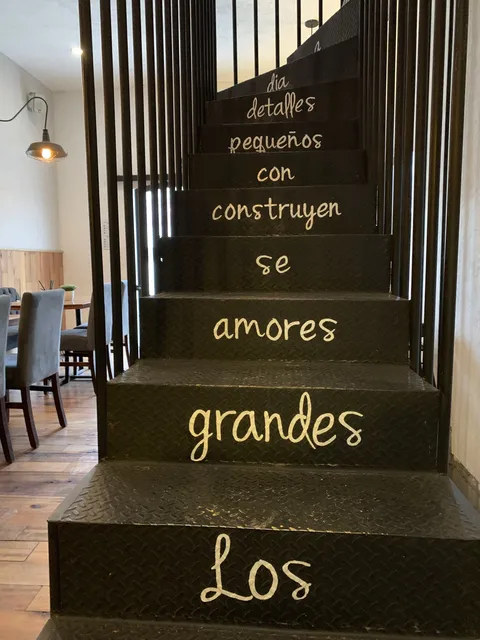 Los
grandes
amores
se
construyen
con
pequeños
detalles
dia